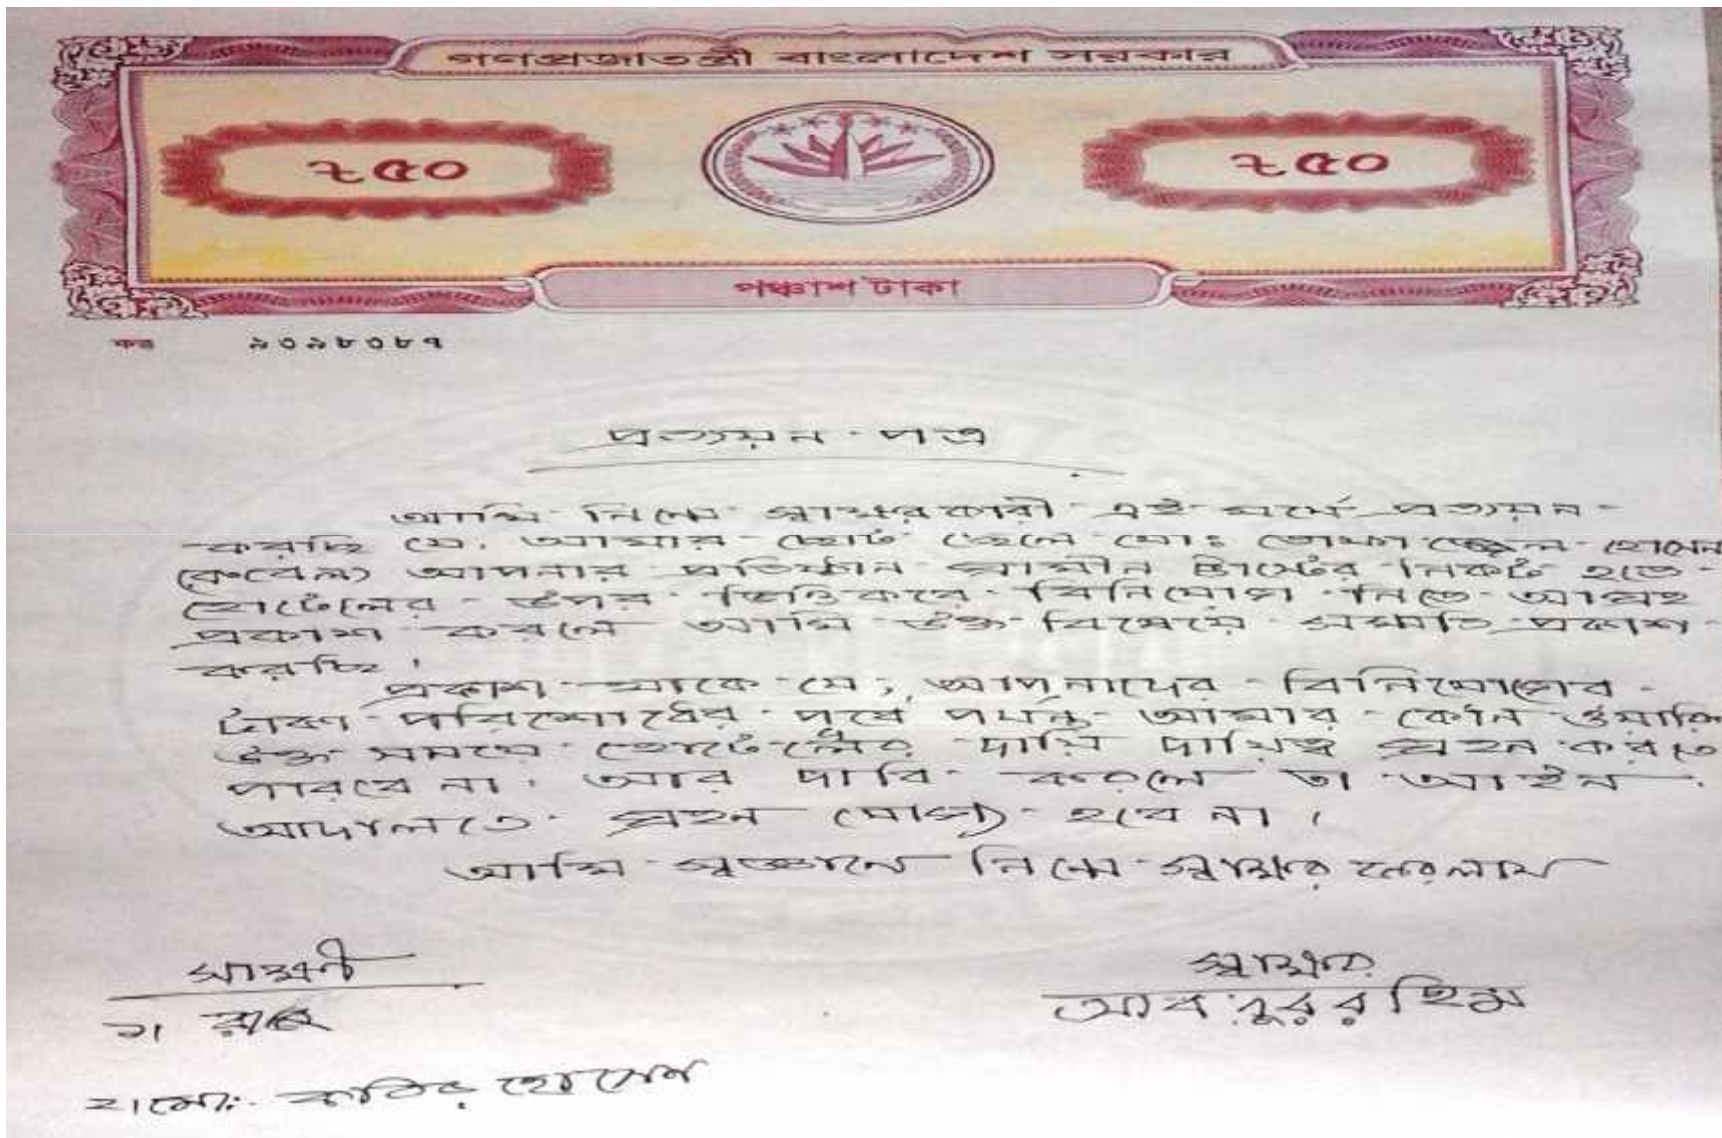 গণপ্রজাতন্ত্রী বাংলাদেশ সরকার
৳ ৫০
৳ ৫০
পঞ্চাশ টাকা
৯৩৯৮৩৮৭
প্রত্যয়ন পত্র
আমি নিম্নে স্বাক্ষরকারী এই মর্মে প্রত্যয়ন
করছি যে, আমার ছোট ছেলে মোঃ তোফাজ্জেল হোসেন
(রুবেল) আপনার প্রতিষ্ঠান গ্রামীন ট্রাস্টের নিকট হতে
হোটেলের উপর ভিত্তি করে বিনিয়োগ নিতে আগ্রহ
প্রকাশ করলে আমি উক্ত বিষয়ে সম্মতি প্রকাশ
করছি।
প্রকাশ থাকে যে, আপনাদের বিনিয়োগের
টাকা পরিশোধের পূর্বে পর্যন্ত আমার কোন ওয়ারিশ
উক্ত সময়ে হোটেলের দায়ি দায়িত্ব গ্রহন করতে
পারবে না। আর দাবি করলে তা আইন
আদালতে গ্রহন যোগ্য হবে না।
আমি স্বজ্ঞানে নিম্নে স্বাক্ষর করলাম
সাক্ষী
স্বাক্ষর
১।
আবদুর রহিম
২। মোঃ কবির হোসেন